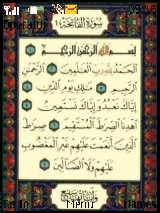 09:16
Operator
سورة الفاتحة
بسم الله الرحمن الرحيم
الحمد لله رب العلمين الرحمن
الرحيم ملك يوم الدين
إياك نعبد وإياك نستعين
اهدنا الصرط المستقيم صرط
الذين أنعمت عليهم غير المغضوب
عليهم ولا الضالين
Menu
Names